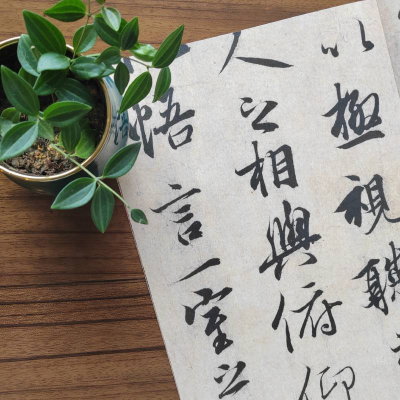 以極視聽
人之相與俯仰
悟言一室之